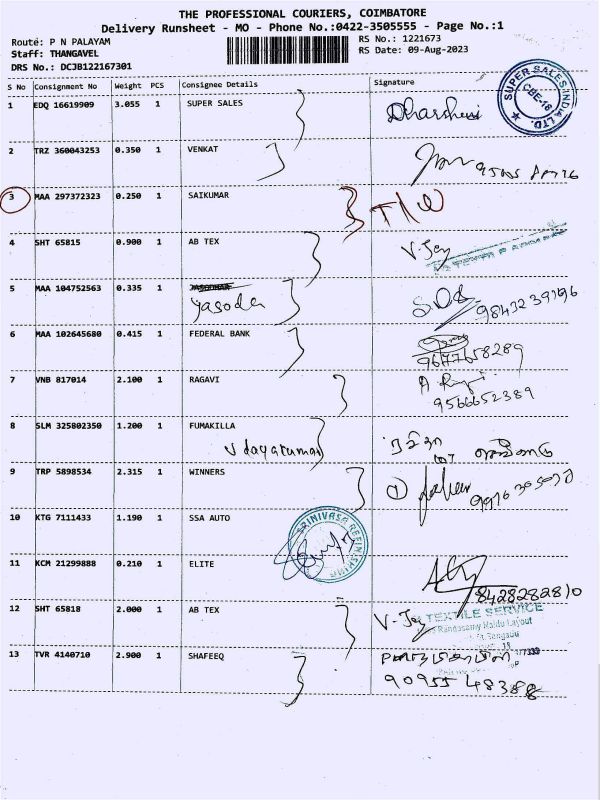 THE PROFESSIONAL COURIERS, COIMBATORE
Delivery Runsheet - MO - Phone No.:0422-3505555 - Page No.:1
Route: P N PALAYAM
RS No.: 1221673
Staff: THANGAVEL
RS Date: 09-Aug-2023
DRS No.: DCJB122167301
S No Consignment No Weight PCS Consignee Details Signature
1 EDQ 16619909 3.055 1 SUPER SALES Dharshini
SUPER SALES INDIA LTD. CBE-18
2 TRZ 360043253 0.350 1 VENKAT
3 MAA 297372323 0.250 1 SAIKUMAR
4 SHT 65815 0.900 1 AB TEX V-Jey
5 MAA 104752563 0.335 1
Yasoda 9843239196
6 MAA 102645680 0.415 1 FEDERAL BANK
9677658289
7 VNB 817014 2.100 1 RAGAVI
9566652389
8 SLM 325802350 1.200 1 FUMAKILLA
Udayakumar
9 TRP 5898534 2.315 1 WINNERS
10 KTG 7111433 1.190 1 SSA AUTO
SRINIVASA REFINISHING
11 KCM 21299888 0.210 1 ELITE
8428282810
12 SHT 65818 2.000 1 AB TEX V-Jey
TEXTILE SERVICE
Rangasamy Naidu Layout
13 TVR 4140710 2.900 1 SHAFEEQ
90955 48388